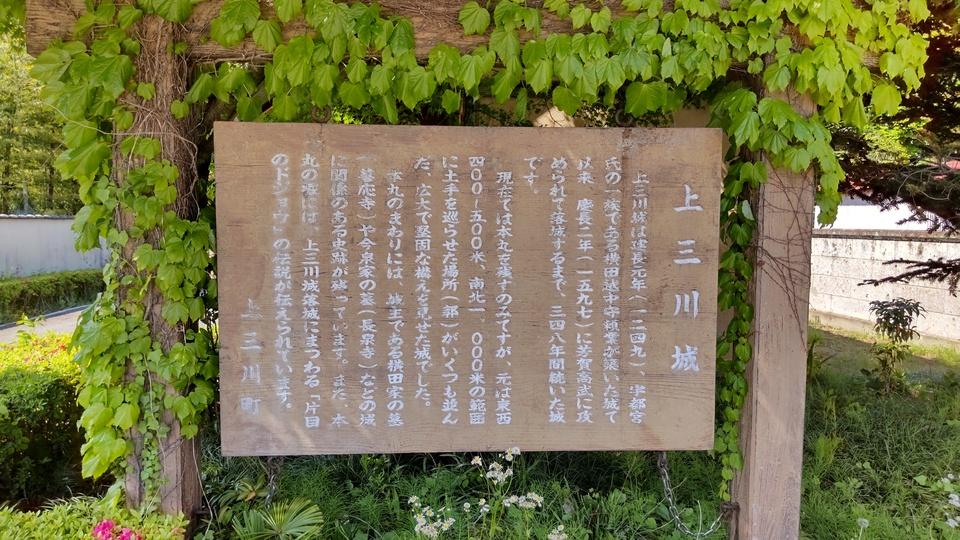 上三川城
上三川城は建長元年(一二四九)、宇都宮
氏の一族である横田越中守頼業が築いた城で
以来、慶長二年(一五九七)に芳賀高武に攻
められて落城するまで、三四八年間続いた城
です。
現在では本丸を残すのみてすが、元は東西
四〇〇~五〇〇米、南北一、〇〇〇米の範囲
に土手を巡らせた場所(郭)がいくつも並ん
だ、広大で堅固な構えを見せた城でした。
本丸のまわりには、城主である横田家の墓
(善応寺)や今泉家の墓(長泉寺)などの城
に関係のある史跡が残っています。また、本
丸の堀には、上三川城落城にまつわる「片目
のドジョウ」の伝説が伝えられています。
上三川町